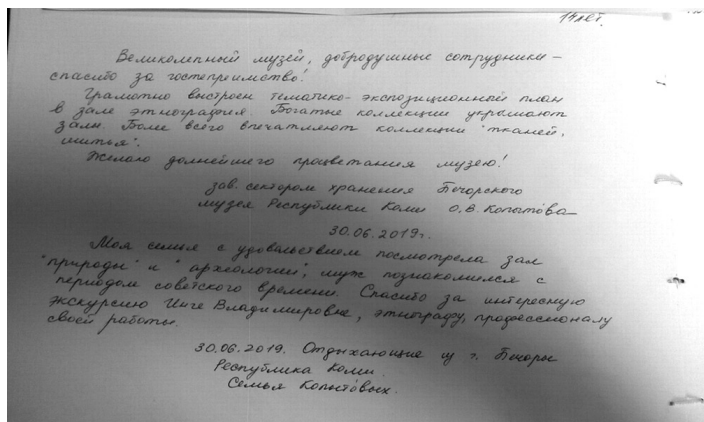 14 лет.
Великолепный музей, добродушные сотрудники –
спасибо за гостеприимство!
Грамотно выстроен тематико-экспозиционный план
в зале этнография. Богатые коллекции украшают
залы. Более всего впечатляют коллекции "тканей,
шитья".
Желаю дальнейшего процветания музею!
зав. сектором хранения Печорского
музея Республики Коми О.В. Копытова
30.06.2019г.
Моя семья с удовольствием посмотрела зал
"природы" и "археологии", муж познакомился с
периодом советского времени. Спасибо за интересную
экскурсию Инге Владимировне, этнографу, профессионалу
своей работы.
30.06.2019. Отдыхающие из г. Печоры
Республика Коми.
Семья Копытовых.